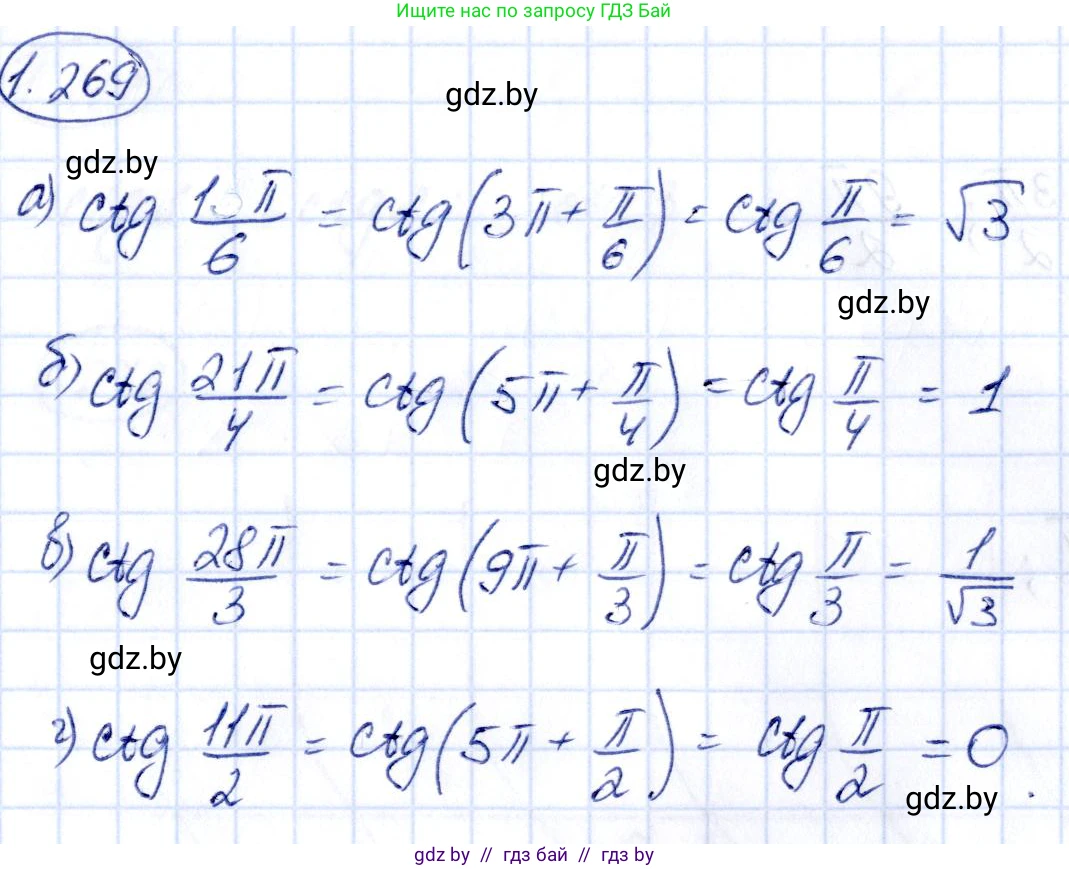 Ищите нас по запросу ГДЗ Бай
1.269
gdz.by
gdz.by
а) ctg π/6 = ctg(3π + π/6) = ctg π/6 = √3
gdz.by
б) ctg 21π/4 = ctg(5π + π/4) = ctg π/4 = 1
gdz.by
в) ctg 28π/3 = ctg(9π + π/3) = ctg π/3 = 1/√3
gdz.by
г) ctg 11π/2 = ctg(5π + π/2) = ctg π/2 = 0.
gdz.by
gdz by // гдз бай // гдз by